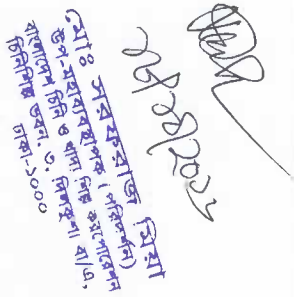 ২৭/০৪/২০২১
মোঃ সরফরাজ মিয়া
উপ-মহাব্যবস্থাপক (পরিদর্শন)
বাংলাদেশ চিনি ও খাদ্য শিল্প করপোরেশন
চিনিশিল্প ভবন, ৩, দিলকুশা বা/এ,
ঢাকা-১০০০